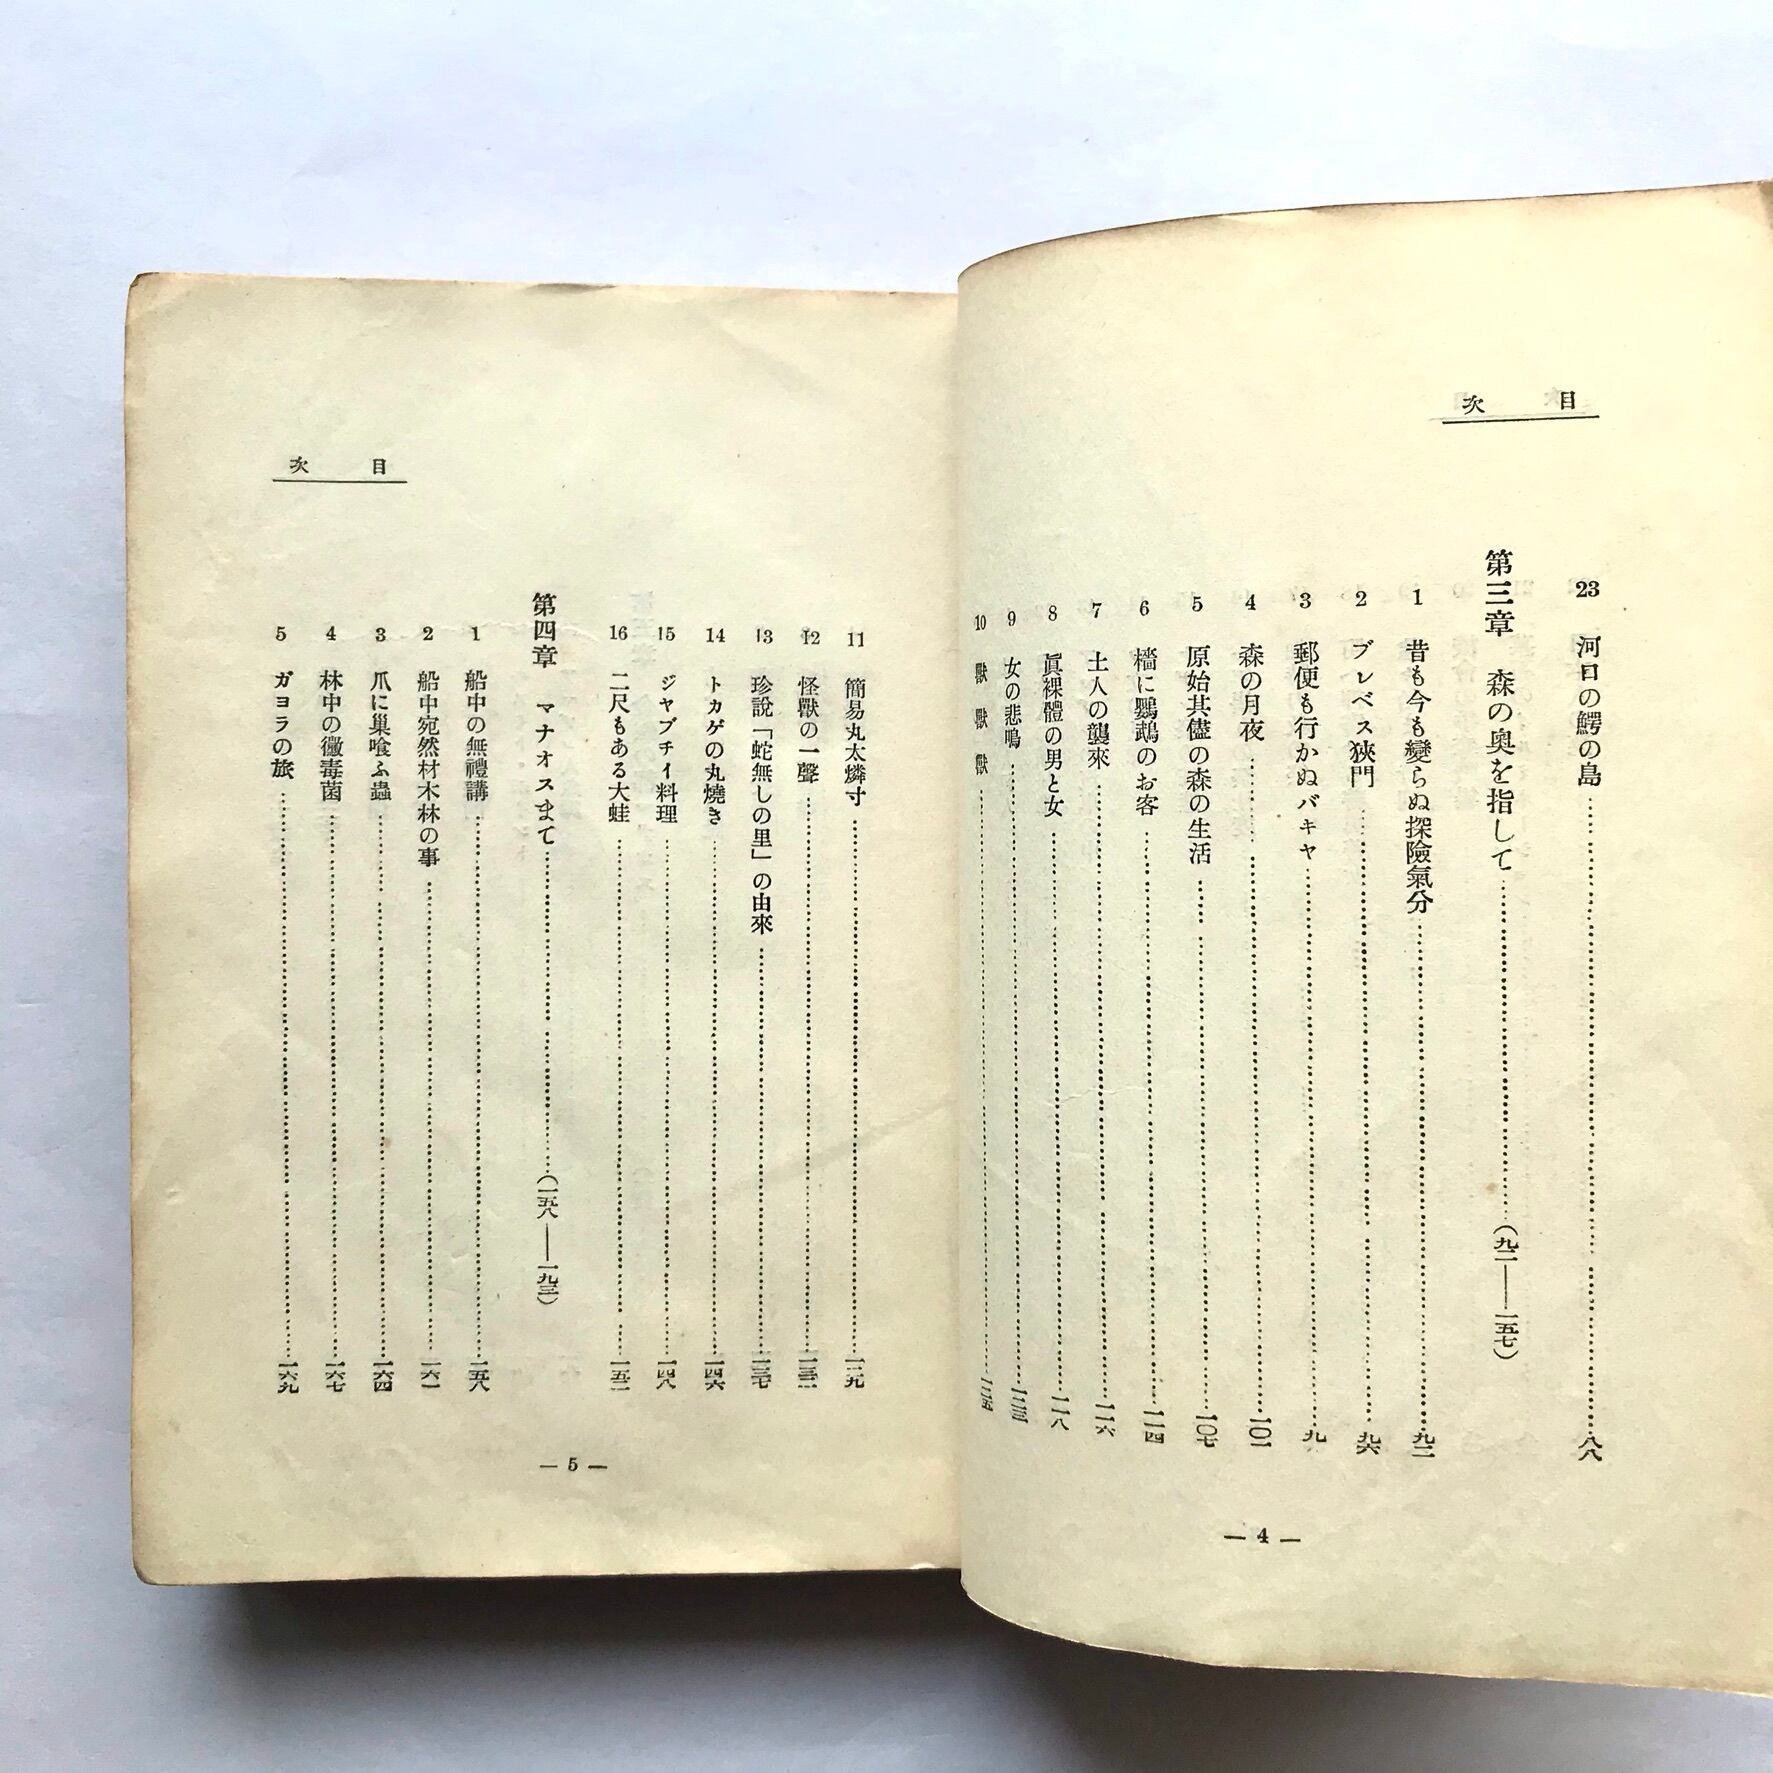 目次
23 河口の鰐の島……八八
第三章 森の奥を指して……(九二——一五七)
1 昔も今も變らぬ探險氣分……九二
2 ブレベス狹門……九六
3 郵便も行かぬバキヤ……九
4 森の月夜……一〇一
5 原始其儘の森の生活……一〇七
6 檣に鸚鵡のお客……一一四
7 土人の襲來……一一六
8 眞裸體の男と女……一一八
9 女の悲鳴……一二三
10 獸獸獸……一二五
— 4 —
目次
11 簡易丸太燐寸……一二九
12 怪獸の一聲……一三二
13 珍說「蛇無しの里」の由來……一三七
14 トカゲの丸燒き……一四六
15 ジヤブチイ料理……一四八
16 二尺もある大蛙……一五二
第四章 マナオスまて……(一五八——一九三)
1 船中の無禮講……一五八
2 船中宛然材木林の事……一六一
3 爪に巢喰ふ蟲……一六四
4 林中の黴毒菌……一六七
5 ガヨラの旅……一六九
— 5 —